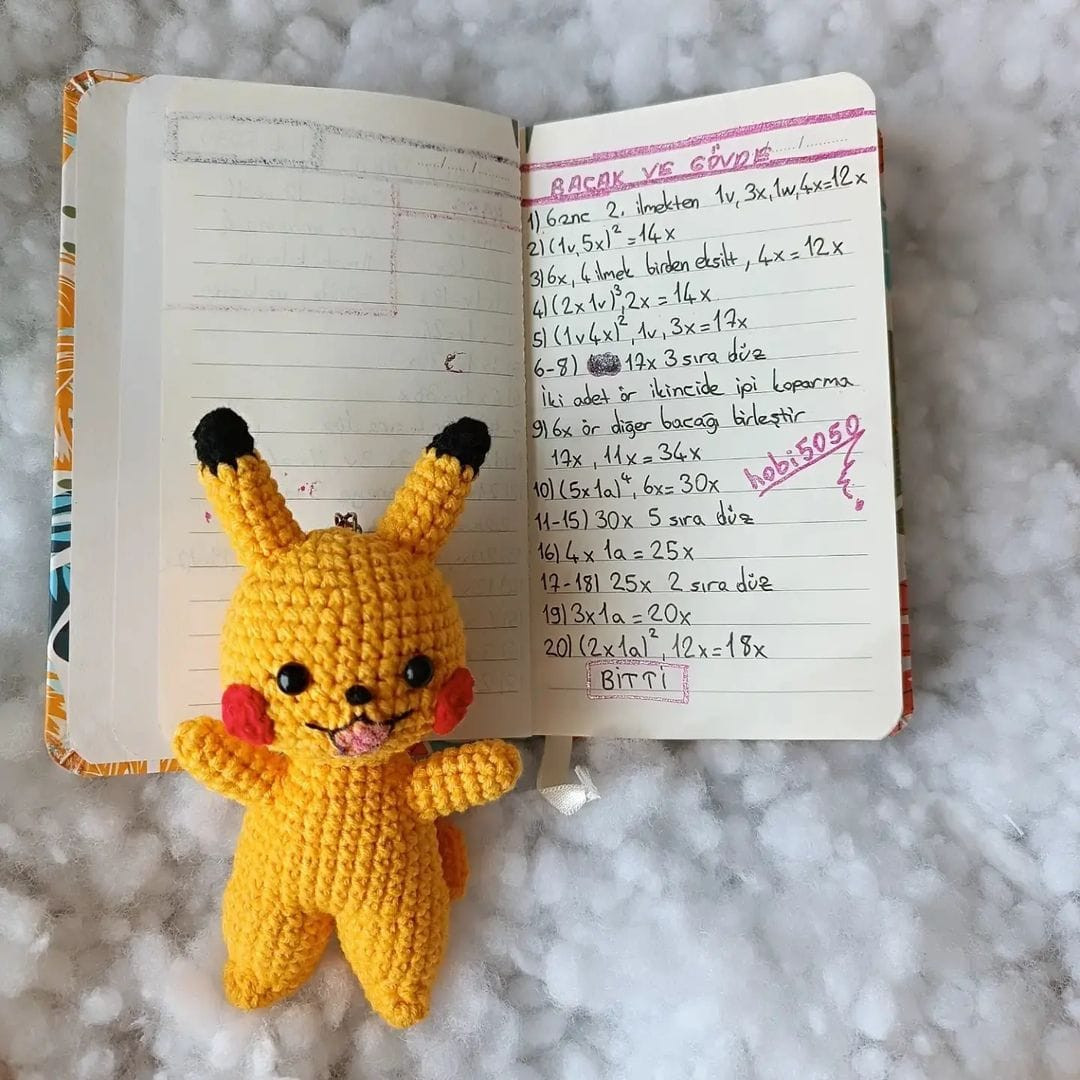 BACAK VE GÖVDE
1) 6znc 2. ilmekten 1v, 3x, 1w, 4x=12x
2) (1v, 5x)² = 14x
3) 6x, 4 ilmek birden eksilt, 4x = 12x
4) (2x 1v)³, 2x = 14x
5) (1v 4x)², 1v, 3x = 17x
6-8) 17x 3 sıra düz
İki adet ör ikincide ipi koparma
9) 6x ör diğer bacağı birleştir
17x, 11x = 34x
hobi5050
10) (5x 1a)⁴, 6x = 30x
11-15) 30x 5 sıra düz
16) 4x 1a = 25x
17-18) 25x 2 sıra düz
19) 3x 1a = 20x
20) (2x 1a)², 12x = 18x
BİTTİ